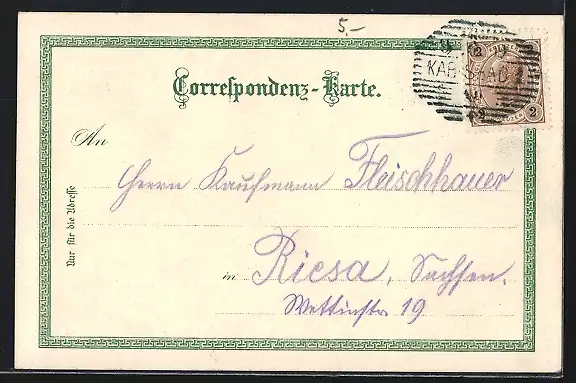 5.-
KARLSBAD
2
2 2
Correspondenz-Karte.
An
Herrn Kaufmann Fleischhauer
Nur für die Adresse
in Riesa, Sachsen.
Wettinstr 19